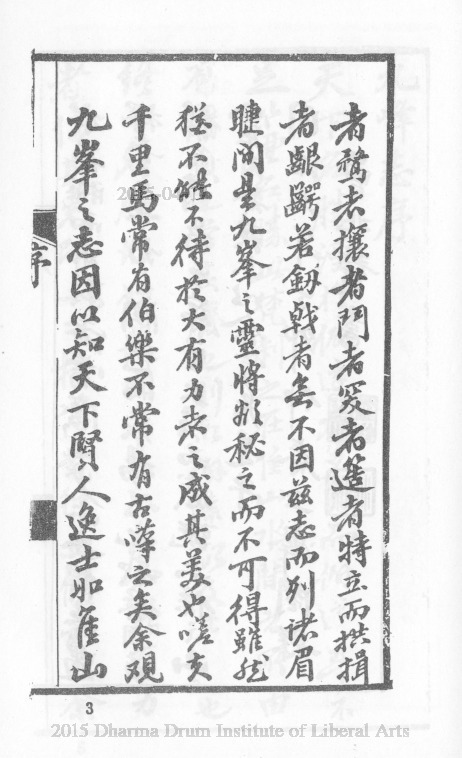 者鶩者攘者鬥者笑者簉者特立而拱揖
者齦齶若劒戟者無不因茲志而列諸眉
睫間是九峯之靈將欲秘之而不可得雖然
猶不能不待於大有力者之成其美也嗟夫
千里馬常有伯樂不常有古今之矣余观
九峯之志因以知天下賢人逸士如隹山
序
3
2015 Dharma Drum Institute of Liberal Arts